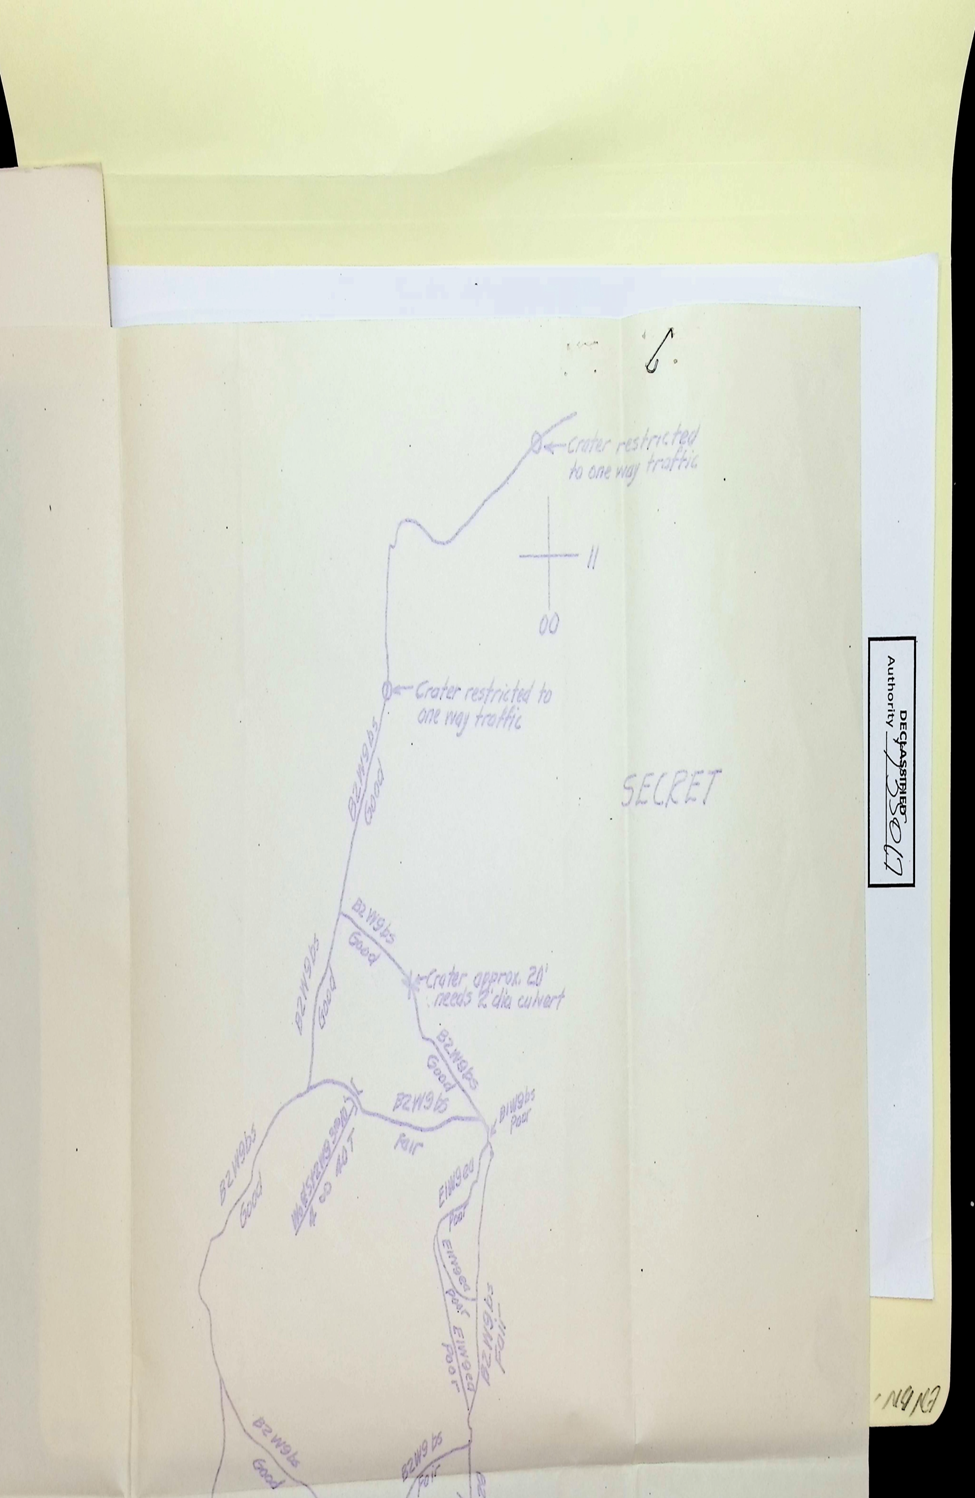 Crater restricted
to one way traffic
11
00
Crater restricted to
one way traffic
B2W9bs
Good
SECRET
DECLASSIFIED
Authority
B2W9bs
Good
Crater approx. 20'
needs 2' dia culvert
B2W9bs
Good
B2W9bs
Good
B2W9bs
Fair
B1W9bs
Poor
B2W9bs
Good
E1W9ea
Poor
E1W9ea
Poor
E1W9ea
Poor
B2W9bs
B2W9bs
Good
B2W9bs
Fair
B2